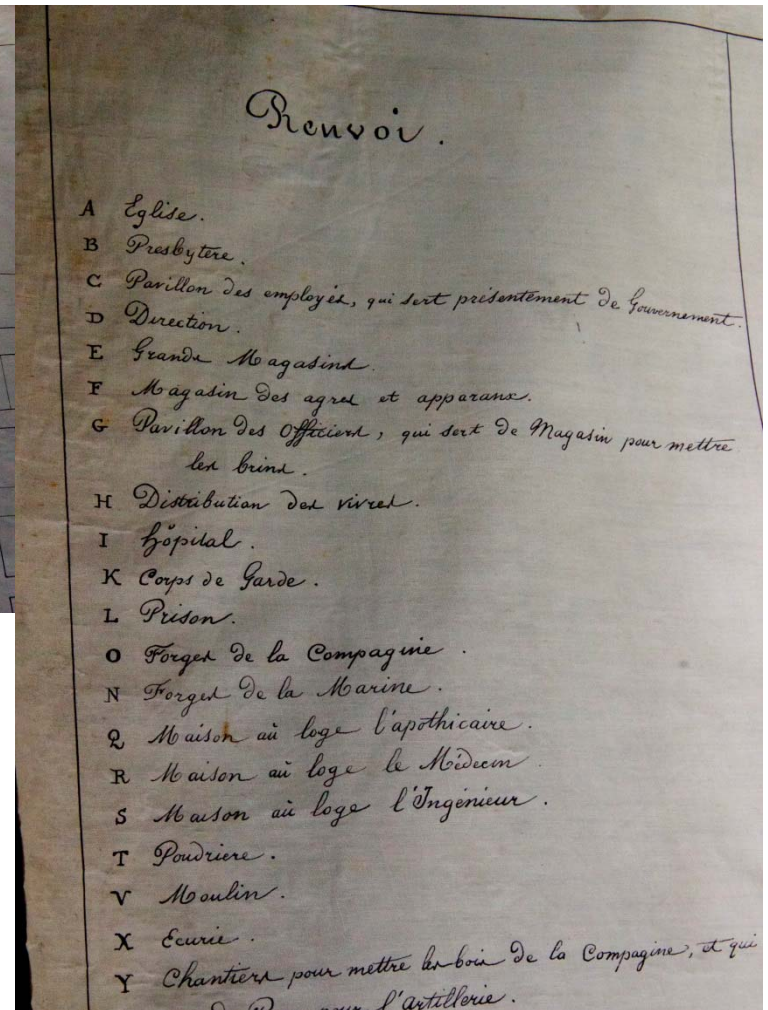 Renvoi.
A Eglise.
B Presbytère.
C Pavillon des employés, qui sert présentement de Gouvernement.
D Direction.
E Grands Magasins.
F Magasin des agres et apparaux.
G Pavillon des Officiers, qui sert de Magasin pour mettre
les brins.
H Distribution des vivres.
I Hôpital.
K Corps de Garde.
L Prison.
O Forges de la Compagine.
N Forges de la Marine.
Q Maison aù loge l'apothicaire.
R Maison aù loge le Médecin
S Maison aù loge l'Ingénieur.
T Poudriere.
V Moulin.
X Ecurie.
Y Chantiers pour mettre les bois de la Compagine, et qui
pour l'artillerie.